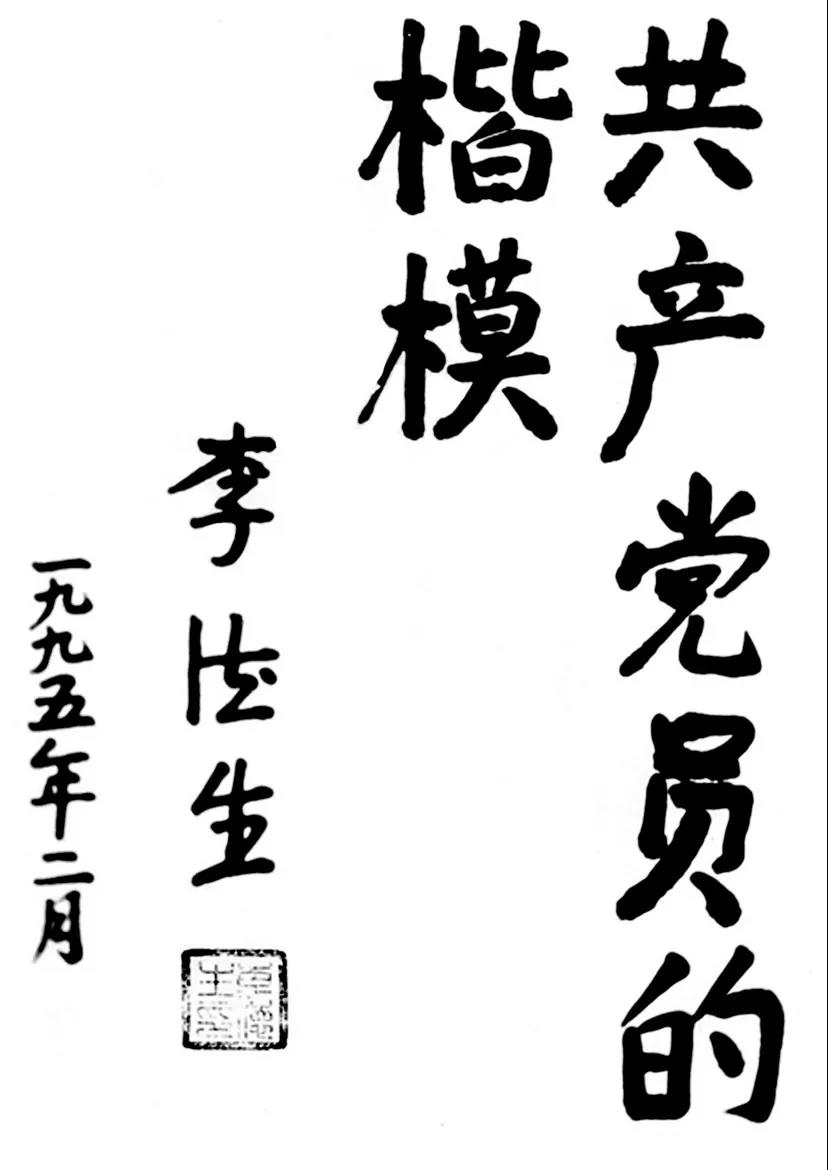 共产党员的
楷模
李德生
一九九五年二月